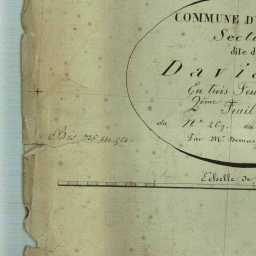 COMMUNE D'
Secti
dite d
David
En trois Feui
2ème Feuil
du N° 269. au
Par Mr
Echelle de